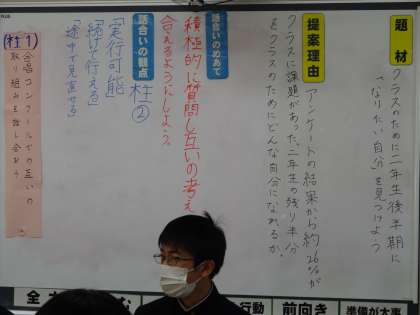 題材
クラスのために二年生後半期に
なりたい自分を見つけよう
提案理由
アンケートの結果から約26%が
クラスに課題があった、二年生の残り半分
をクラスのためにどんな自分になれるか
話合いのめあて
積極的に質問し互いの考え
合えるようにしよう。
話合いの観点
柱②
「実行可能」
「続けて行える」
「途中で見直せる」
柱1
合唱コンクールでの互いの
取り組みを話し合おう
行動
前向き
準備が大事